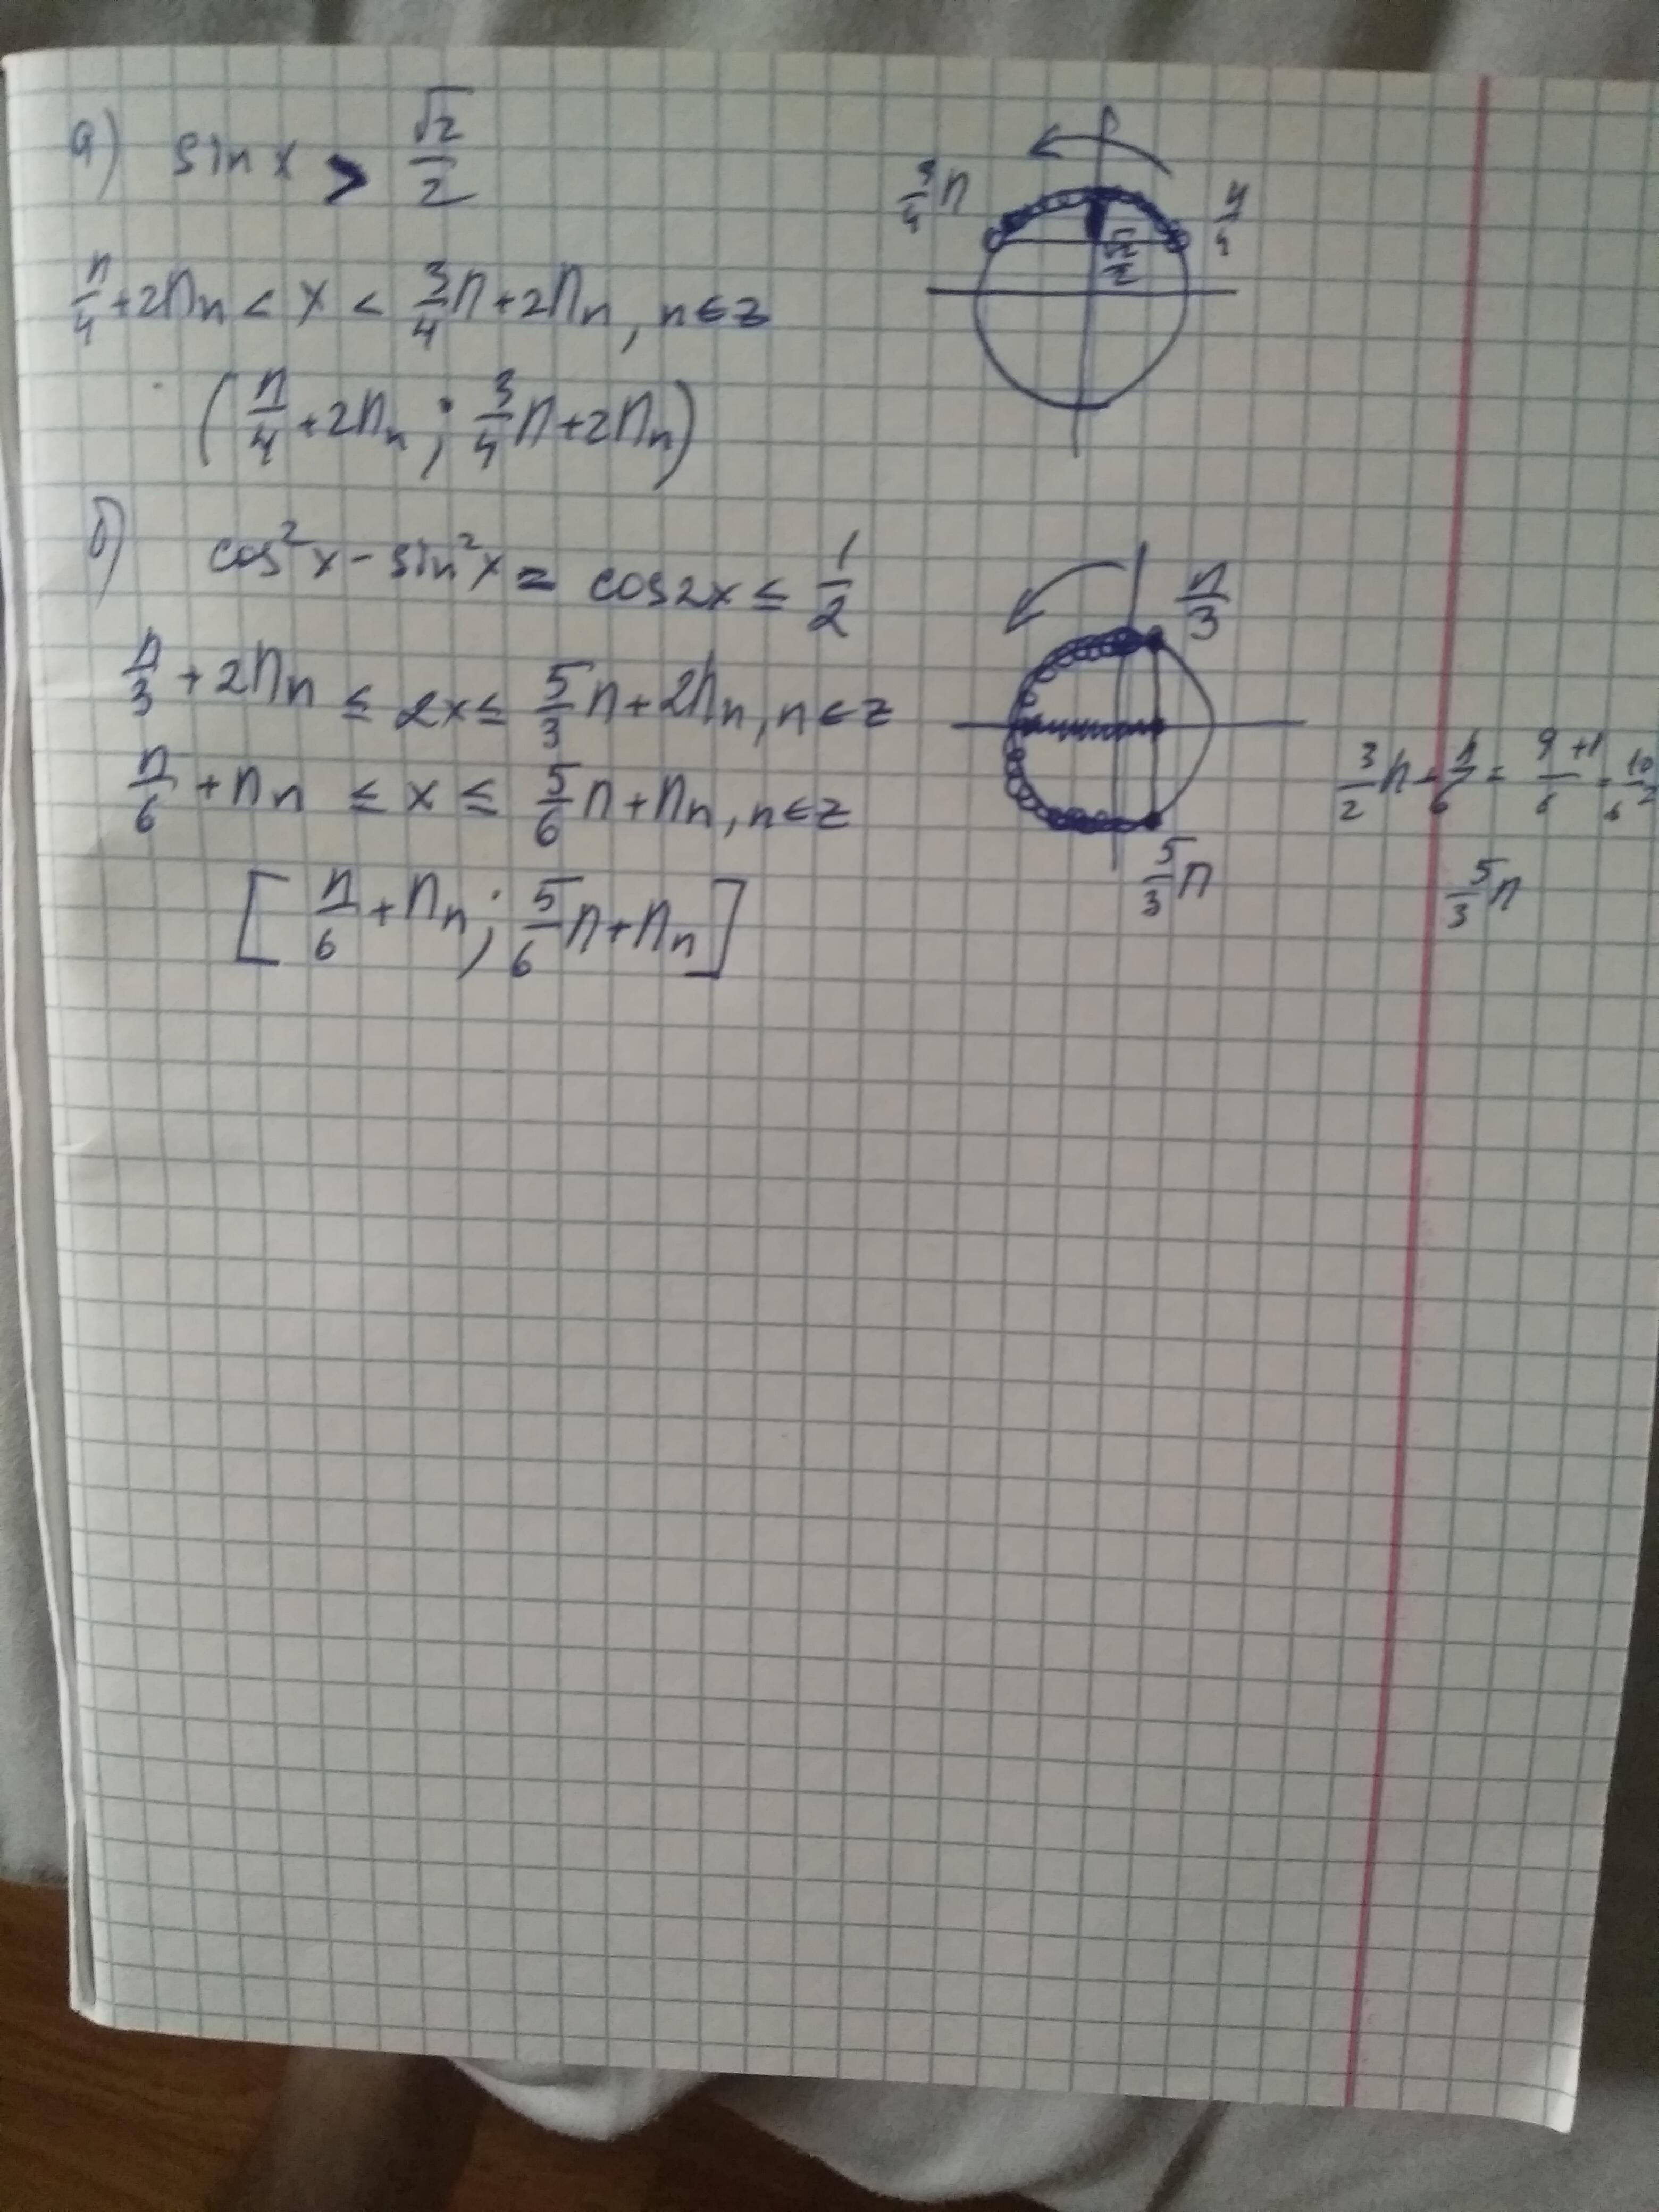 а) sin x > √2/2
π/4 + 2πn < x < 3/4 π + 2πn, n ∈ z
(π/4 + 2πn ; 3/4 π + 2πn)
3/4 π
√2/2
б) cos²x - sin²x = cos2x ≤ 1/2
π/3 + 2πn ≤ 2x ≤ 5/3 π + 2πn, n ∈ z
π/6 + πn ≤ x ≤ 5/6 π + πn, n ∈ z
[π/6 + πn ; 5/6 π + πn]
π/3
5/3 π
5/3 π